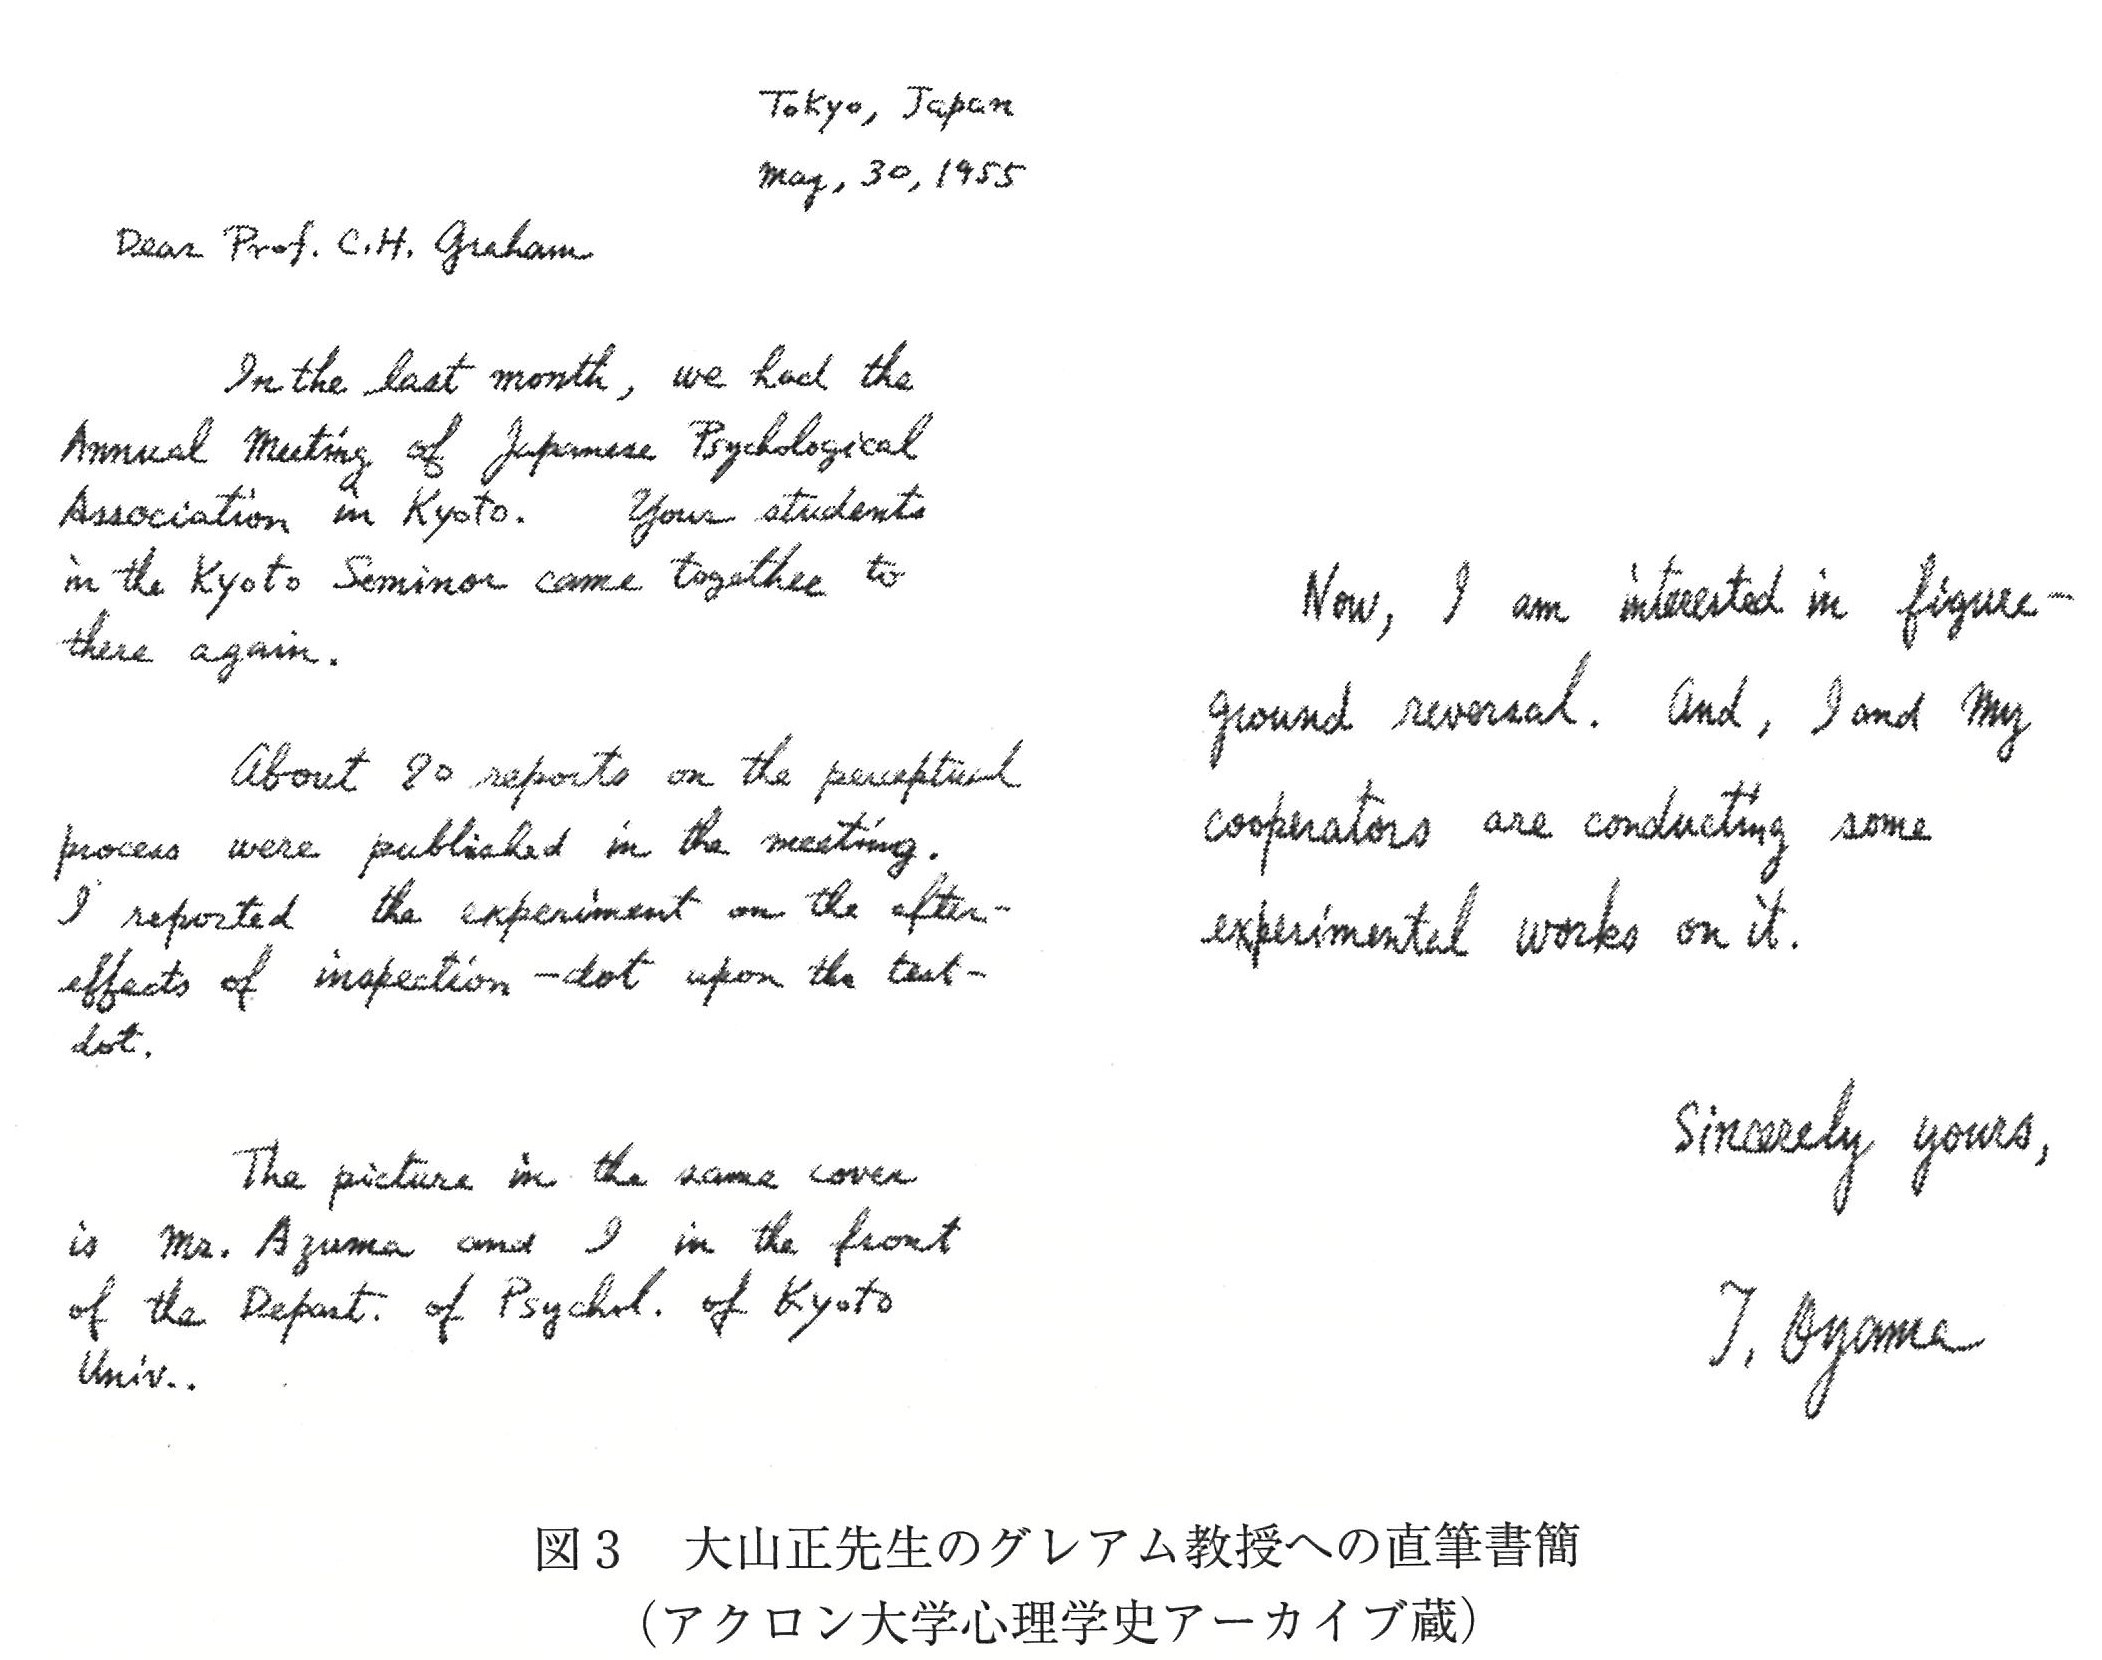 Tokyo, Japan
May, 30, 1955
Dear Prof. C.H. Graham
In the last month, we had the
Annual Meeting of Japanese Psychological
Association in Kyoto. Your students
in the Kyoto Seminor came together to
there again.
About 80 reports on the perceptual
process were published in the meeting.
I reported the experiment on the after-
effects of inspection-dot upon the test-
dot.
The picture in the same cover
is Mr. Azuma and I in the front
of the Depart. of Psychol. of Kyoto
Univ..
Now, I am interested in figure-
ground reversal. And, I and my
cooperators are conducting some
experimental works on it.
Sincerely yours,
T. Oyama
図3 大山正先生のグレアム教授への直筆書簡
(アクロン大学心理学史アーカイブ蔵)